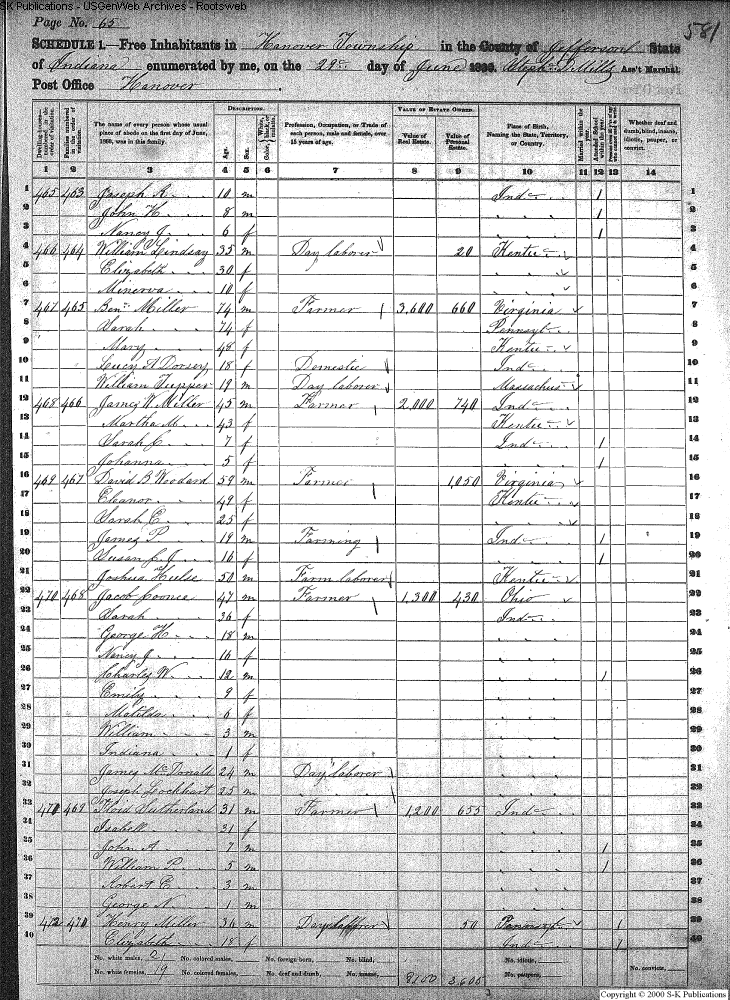 S-K Publications - USGenWeb Archives - Rootsweb
Page No. 65
581
SCHEDULE 1.—Free Inhabitants in Hanover Township in the County of Jefferson State
of Indiana enumerated by me, on the 29th day of June 1860. Ass't Marshal.
Post Office Hanover
Dwelling-houses—numbered in the order of visitation.
Families numbered in the order of visitation.
The name of every person whose usual place of abode on the first day of June, 1860, was in this family.
DESCRIPTION.
Age.
Sex.
Color, White, black, or mulatto.
Profession, Occupation, or Trade of each person, male and female, over 15 years of age.
VALUE OF ESTATE OWNED.
Value of Real Estate.
Value of Personal Estate.
Place of Birth, Naming the State, Territory, or Country.
Married within the year.
Attended School within the year.
Whether deaf and dumb, blind, insane, idiotic, pauper, or convict.
1 2 3 4 5 6 7 8 9 10 11 12 13 14
1 465 463 Joseph A. 10 m Ind 1 1
2 John H. 8 m " " 1 2
3 Nancy J. 6 f " " 1 3
4 466 464 William Lindsay 35 m Day laborer 20 Kentu 4
5 Elizabeth 30 f " " 5
6 Minerva 10 f " " 6
7 467 465 Benj. Miller 74 m Farmer 3,600 660 Virginia 7
8 Sarah 74 f Pennsyt 8
9 Mary 48 f Kentu 9
10 Lucy A Dorsey 18 f Domestic Ind 10
11 William Tupper 19 m Day laborer Massachus 11
12 468 466 James W. Miller 45 m Farmer 2,000 740 Ind 12
13 Martha M. 43 f Kentu 13
14 Sarah C. 7 f Ind 1 14
15 Johanna 5 f " " 1 15
16 469 467 David B Woodard 59 m Farmer 1,050 Virginia 16
17 Eleanor 49 f Kentu 17
18 Sarah E. 25 f " " 18
19 James P. 19 m Farming Ind 1 19
20 Susan J. 16 f " " 1 20
21 Joshua Hulse 50 m Farm laborer Kentu 21
22 470 468 Jacob Coonce 47 m Farmer 1,300 430 Ohio 22
23 Sarah 36 f Ind 23
24 George H. 18 m " " 24
25 Nancy J. 16 f " " 25
26 Charles W. 12 m " " 1 26
27 Emily 9 f " " 27
28 Matilda 6 f " " 28
29 William 3 m " " 29
30 Indiana 1 f " " 30
31 James McDonald 24 m Day laborer " " 31
32 Joseph Lockhart 25 m " " 32
33 471 469 Floid Sutherland 31 m Farmer 1,200 655 Ind 33
34 Isabell 31 f " " 34
35 John A. 7 m " " 1 35
36 William P. 5 m " " 1 36
37 Robert E. 3 m " " 37
38 George N. 1 m " " 38
39 472 470 Henry Miller 36 m Day laborer 50 Pennsyt 1 39
40 Elizabeth 18 f Ind 1 40
No. white males, 21 No. colored males, No. foreign born, No. blind, No. idiotic, No. convicts,
No. white females, 19 No. colored females, No. deaf and dumb, No. insane, 8100 3,600 No. paupers,
Copyright © 2000 S-K Publications